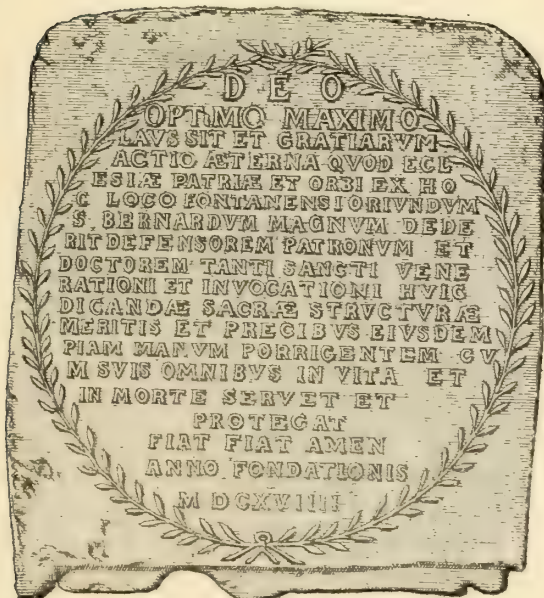 DEO
OPTIMO MAXIMO
LAVS SIT ET GRATIARVM
ACTIO ÆTERNA QVOD ECL
ESIÆ PATRIÆ ET ORBI EX HO
C LOCO FONTANENSI ORIVNDVM
S. BERNARDVM MAGNVM DEDE
RIT DEFENSOREM PATRONVM ET
DOCTOREM TANTI SANCTI VENE
RATIONI ET INVOCATIONI HVIC
DICANDÆ SACRÆ STRVCTVRÆ
MERITIS ET PRECIBVS EIVSDEM
PIAM MANVM PORRIGENTEM CV
M SVIS OMNIBVS IN VITA ET
IN MORTE SERVET ET
PROTEGAT
FIAT FIAT AMEN
ANNO FONDATIONIS
M DCXVIIII